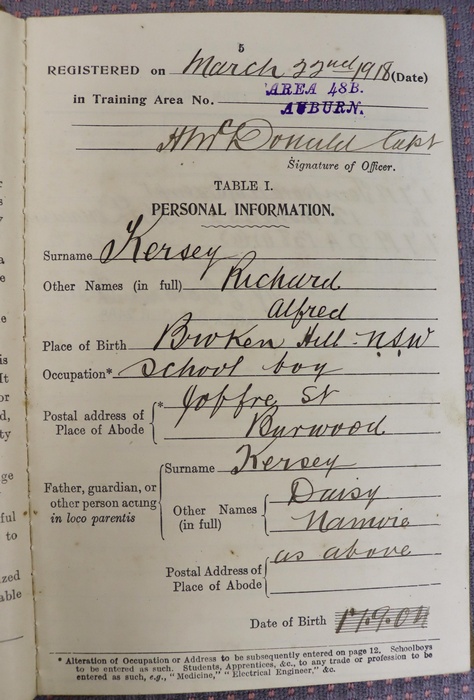 5
REGISTERED on March 22nd 1918 (Date)
in Training Area No. AREA 48B.
AUBURN.
H McDonald Capt
Signature of Officer.
TABLE I.
PERSONAL INFORMATION.
Surname Kersey
Other Names (in full) Richard
Alfred
Place of Birth Broken Hill - N.S.W
Occupation* School boy
Postal address of Place of Abode {* Joffre St
Burwood
Father, guardian, or other person acting in loco parentis
Surname Kersey
Other Names (in full) Daisy
Postal Address of Place of Abode as above
Date of Birth 17.9.04
* Alteration of Occupation or Address to be subsequently entered on page 12. Schoolboys
to be entered as such. Students, Apprentices, &c., to any trade or profession to be
entered as such, e.g., "Medicine," "Electrical Engineer," &c.